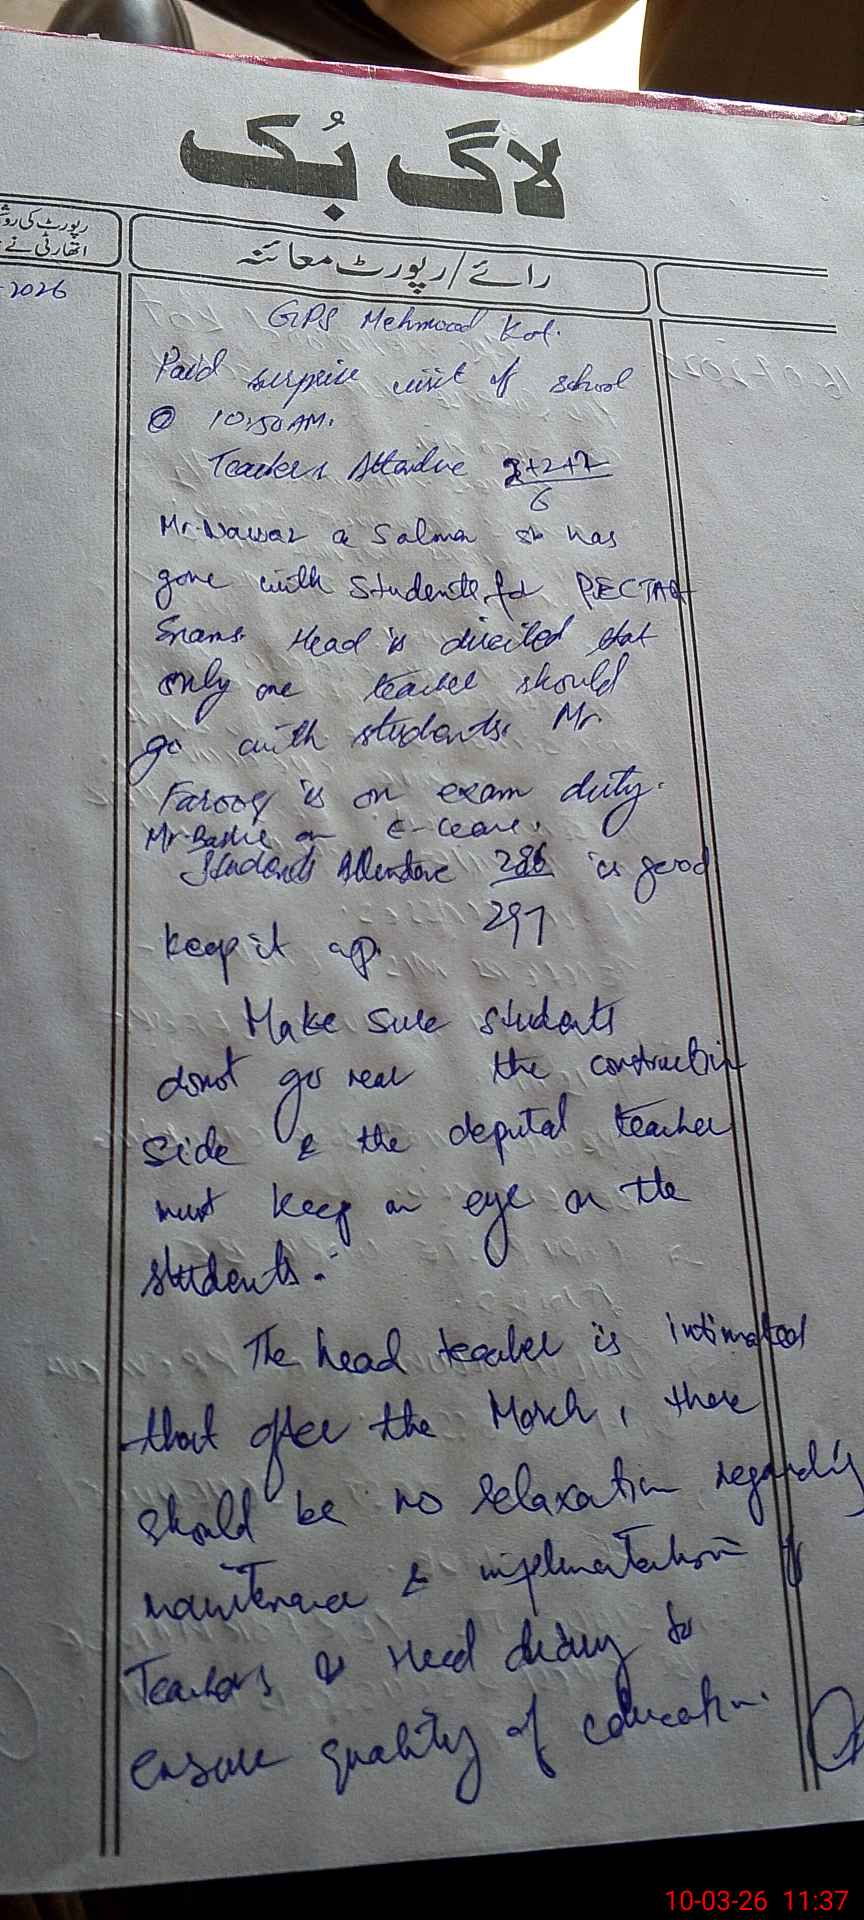 لاگ بُک
رپورٹ کی
اتھارٹی نے
رائے/رپورٹ معائنہ
-2026
GPS Mehmood Kot.
Paid surprise visit of school
@ 10:50 AM.
Teachers Attendance 2+2+2
6
Mr. Nawaz & Salman has
gone with students for PECTAA
Exams. Head is directed that
only one teacher should
go with students. Mr.
Farooq is on exam duty.
Mr. on C-Leave.
Students Attendance 286 is good
297
keep it up.
Make sure students
donot go near the construction
side & the deputed teacher
must keep an eye on the
students.
The head teacher is intimated
that after the March, there
should be no relaxation regarding
maintenance & implementation of
Teachers & Head diary to
ensure quality of education.
10-03-26 11:37